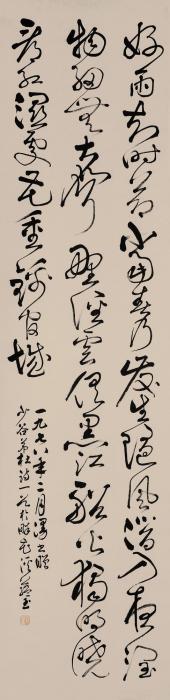 好雨知时节当春乃发生随风潜入夜润
物细无声野径云俱黑江船火独明晓
看红湿处花重锦官城
一九七八年二月漫书赠
少谷弟杜诗一首于